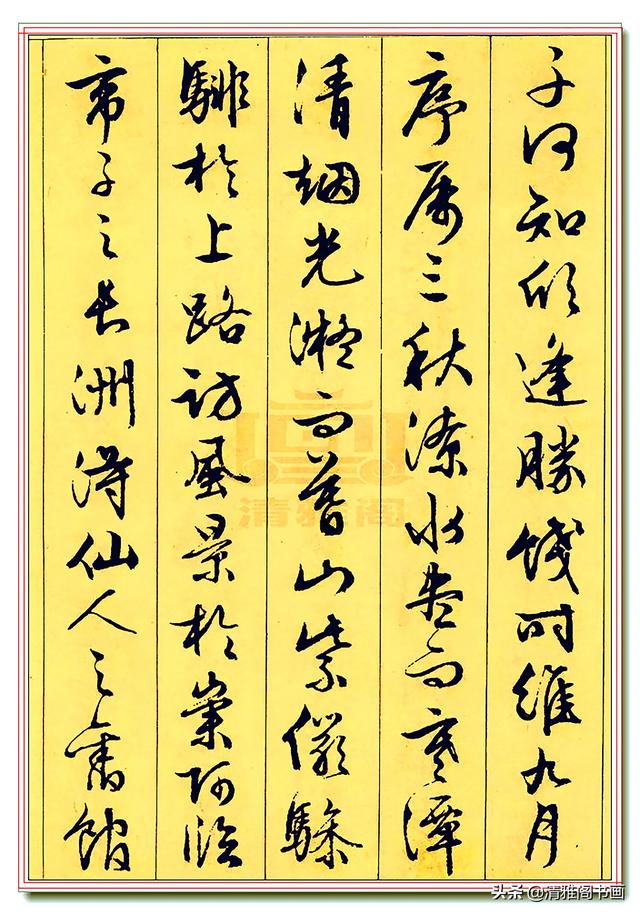 子何知欣逢勝餞时維九月
序属三秋潦水尽而寒潭
清烟光凝而暮山紫儼驂
騑於上路访風景於崇阿临
帝子之长洲得仙人之舊館
清雅阁
头条 @清雅阁书画